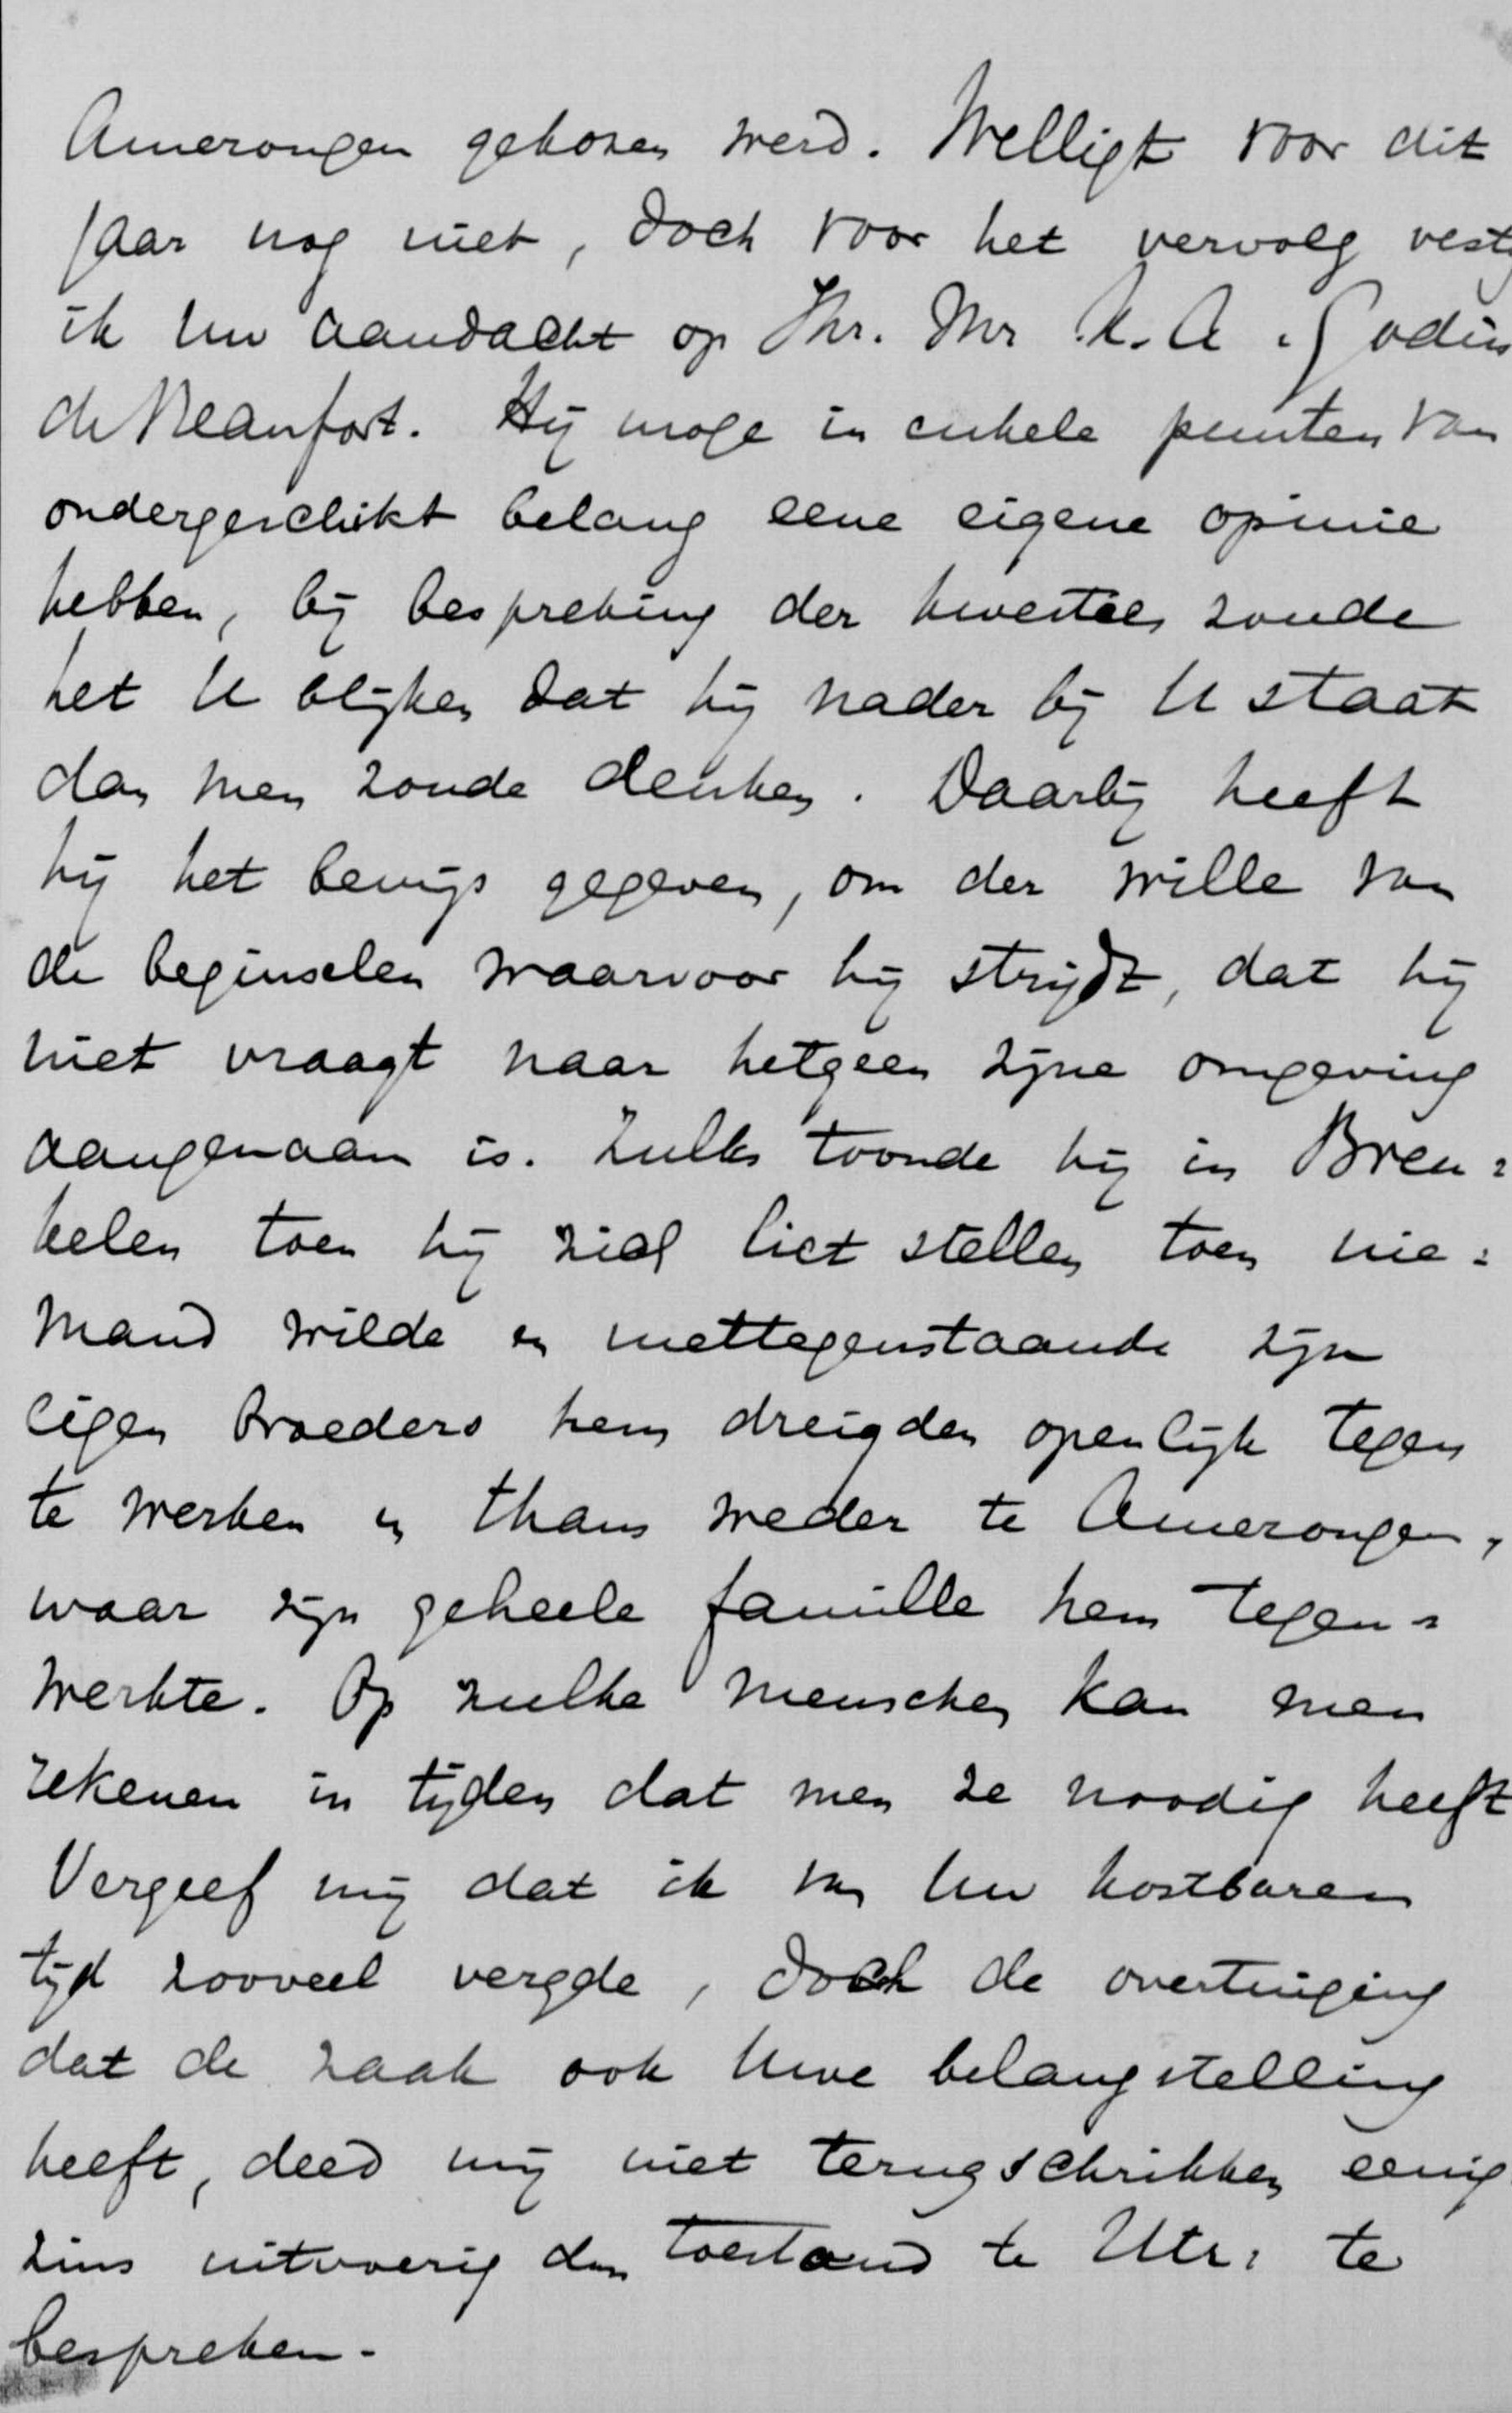 Amerongen gekozen werd. Welligt voor dit
jaar nog niet, doch voor het vervolg vestig
ik Uw aandacht op Jhr. Mr K. A. Godin
de Beaufort. Hij moge in enkele punten van
ondergeschikt belang eene eigene opinie
hebben, bij bespreking der kwesties zoude
het U blijken dat hij nader bij U staat
dan men zoude denken. Daarbij heeft
hij het bewijs gegeven, om der wille van
de beginselen waarvoor hij strijdt, dat hij
niet vraagt naar hetgeen zijne omgeving
aangenaam is. Zulks toonde hij in Breu=
kelen toen hij zich liet stellen toen nie=
mand wilde en niettegenstaande zijn
eigen broeders hem dreigden openlijk tegen
te werken en thans weder te Amerongen,
waar zijn geheele famille hem tegen=
werkte. Op zulke menschen kan men
rekenen in tijden dat men ze noodig heeft
Vergeef mij dat ik van Uw kostbaren
tijd zooveel vergde, doch de overtuiging
dat de zaak ook Uwe belangstelling
heeft, deed mij niet terugschrikken eenig
zins uitvoerig den toestand te Utr. te
bespreken.